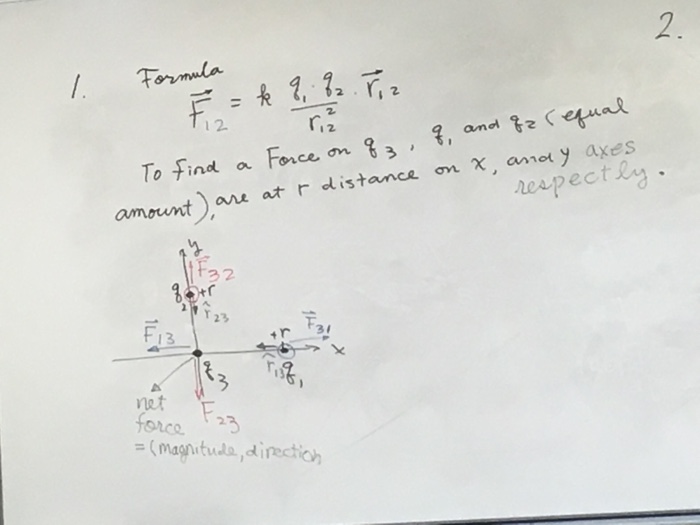 2.
1. Formula
F⃗12 = k q1·q2 / r12² · r⃗12
To find a Force on q3, q1 and q2 (equal
amount), are at r distance on x, and y axes
respectly.
y
F⃗32
q2 +r
r̂23
F⃗13
+r F⃗31
x
q3 r̂13 q1
net F23
force
=(magnitude, direction